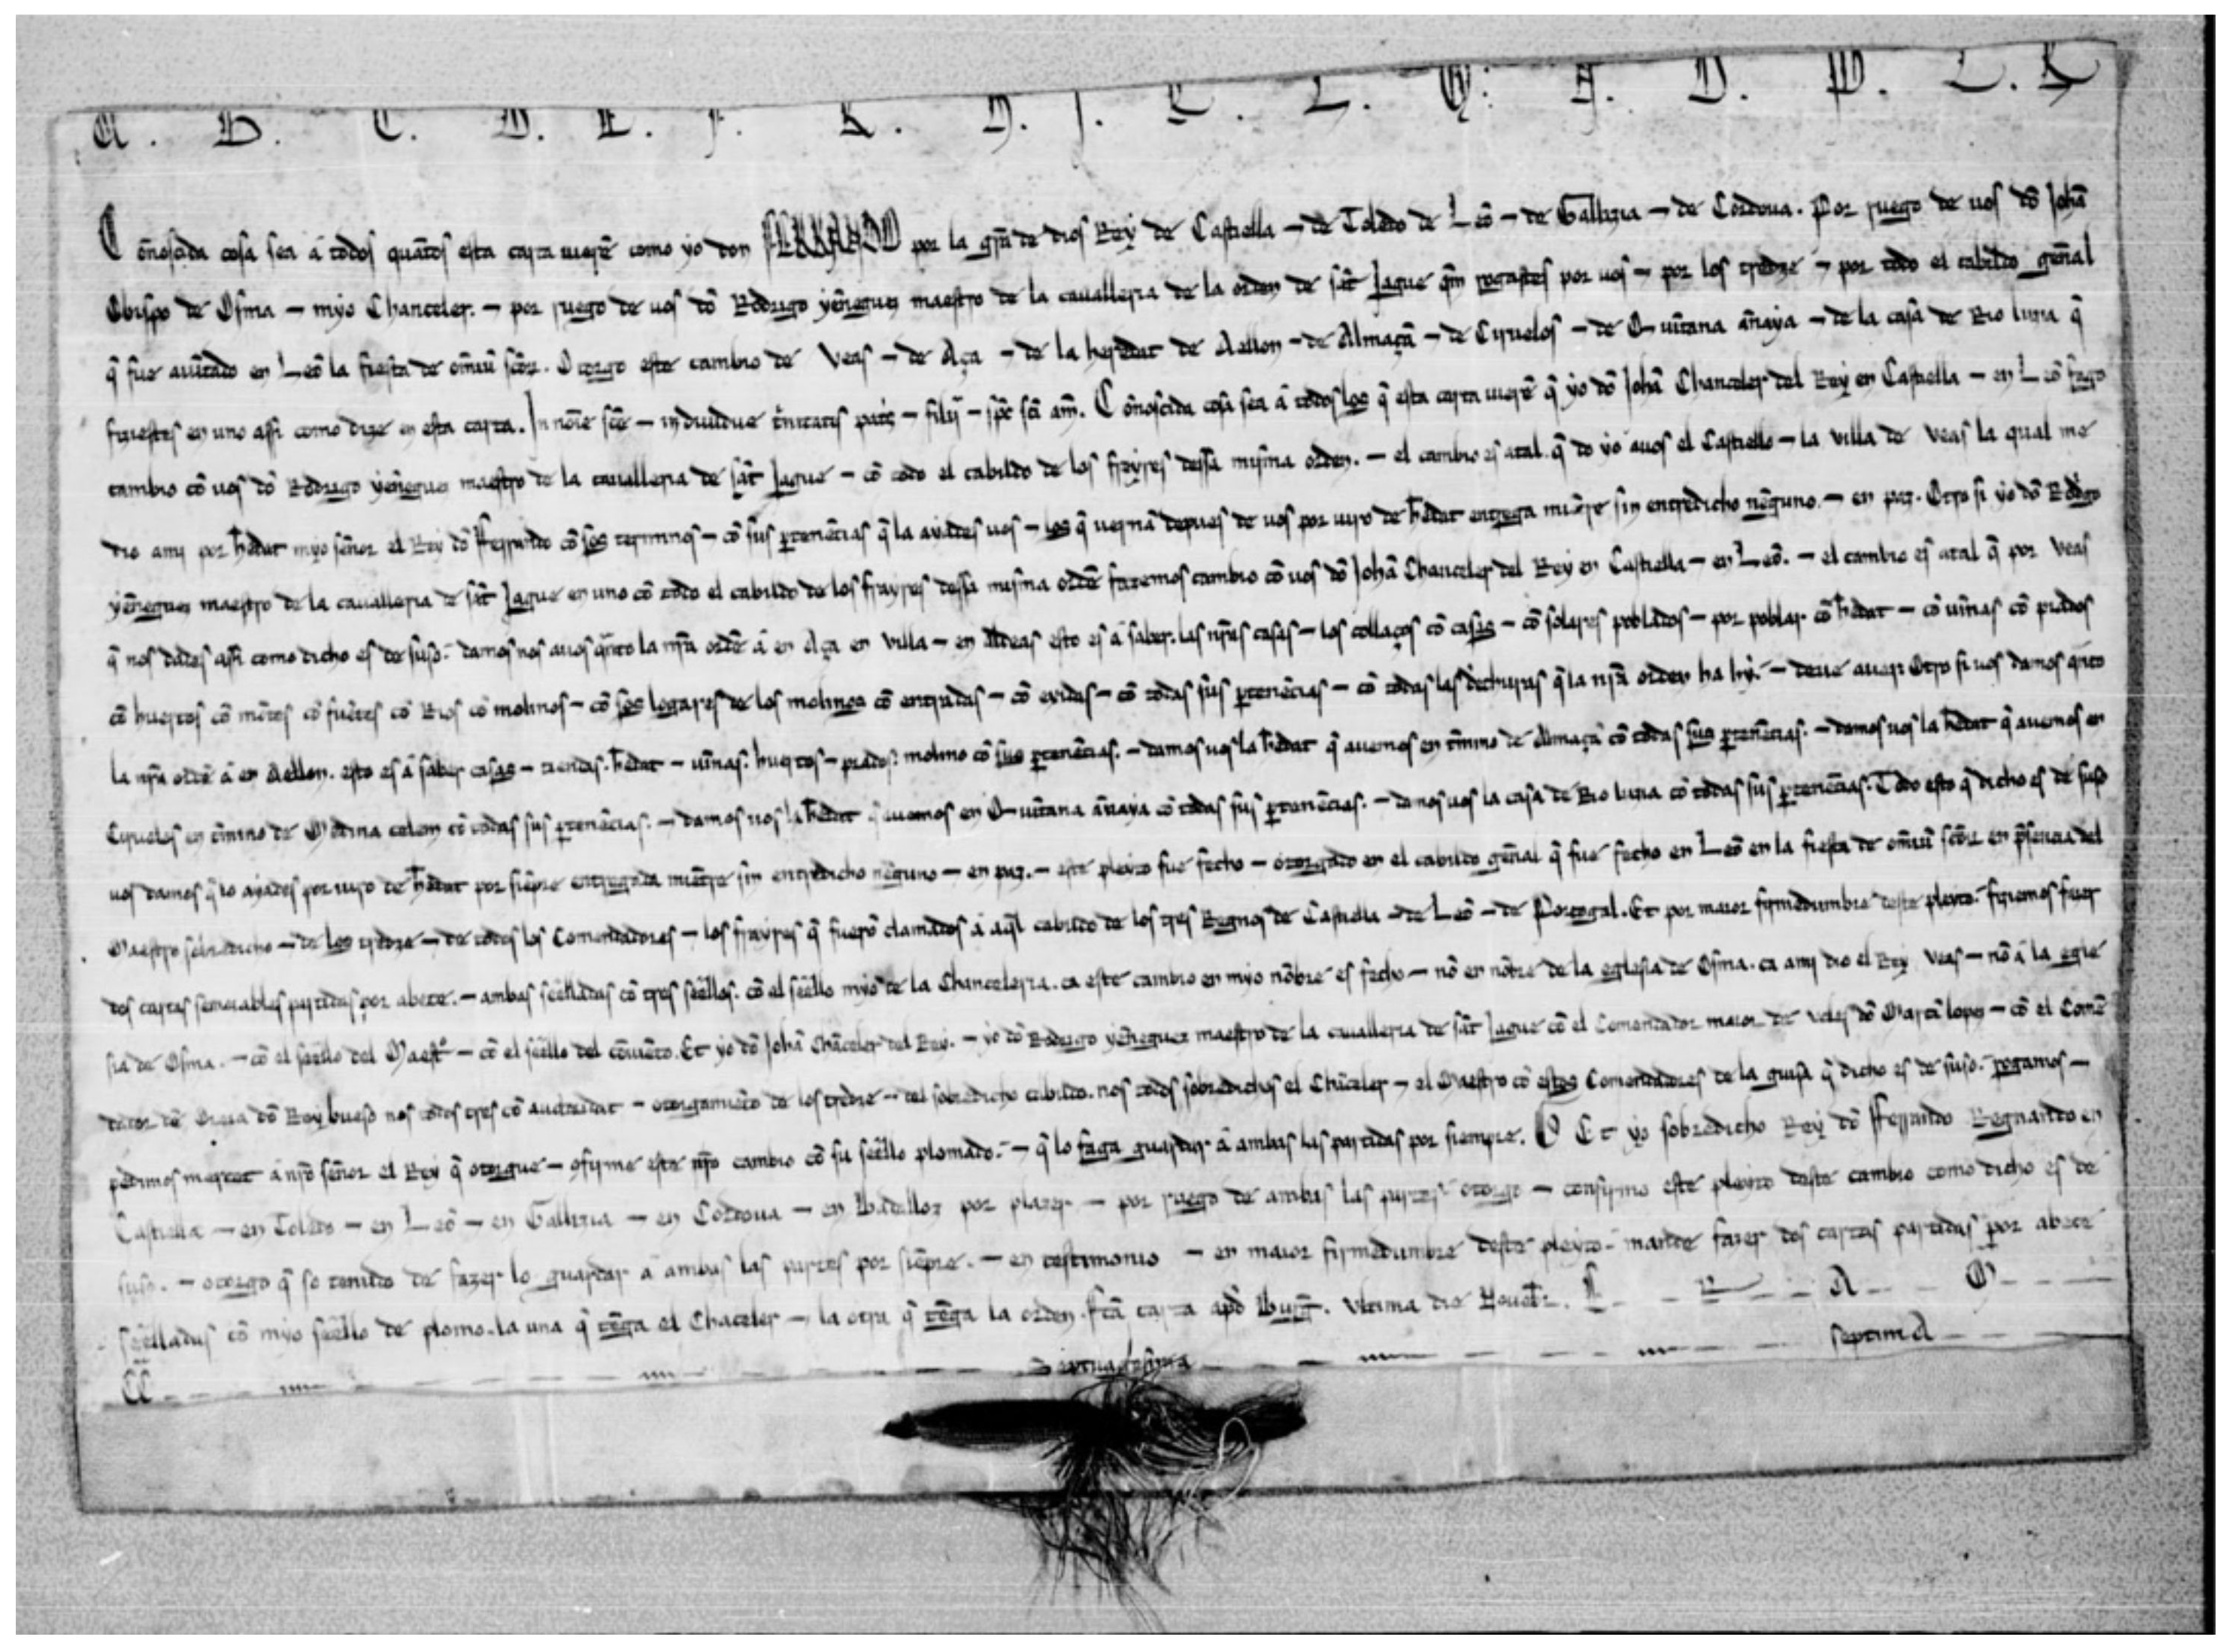 A . B . C . D . E . F . K . H . I . C . L . Q . A . D . P . L . K
Coñosçida cosa sea á todos quãtos esta carta uierẽ como yo don FERRANDO por la grã de dios Rey de Castiella ⁊ de Toledo de Leõ ⁊ de Gallizia ⁊ de Cordoua. Por ruego de uos dõ Johã
Obispo de Osma ⁊ myo Chanceler. ⁊ por ruego de uos dõ Rodrigo yẽneguez maestro de la cauallería de la orden de sãt Jague qm̃ rogastes por uos ⁊ por los tredze ⁊ por todo el cabildo gñal
q̃ fue aiũtado en Leõ la fiesta de om̃iũ sc̃or. Otorgo este cambio de Veas ⁊ de Aça ⁊ de la heredat de Aellon ⁊ de Almaçã ⁊ de Ciruelos ⁊ de Quĩtana añaya ⁊ de la casa de Rio luna q̃
firiestes en uno assi como dize en esta carta. In noĩe sc̃e ⁊ indiuidue t̃nitatis pat̃s ⁊ filij ⁊ sp̃c sc̃i am̃. Coñosçida cosa sea á todos los q̃ esta carta uierẽ q̃ yo dõ Johã Chanceler del Rey en Castiella ⁊ en Leõ fago
cambio cõ uos dõ Rodrigo yẽneguez maestro de la cauallería de sãt Jague ⁊ cõ todo el cabildo de los frayres dessa misma orden. ⁊ el cambio es atal. q̃ do yo áuos el Castiello ⁊ la villa de Veas la qual me
dio ami por h̃edat myo señor el Rey dõ Fferrando cõ sos terminos ⁊ cõ sus p̱tenẽcias q̃ la ayades uos ⁊ los q̃ uernã depues de uos por iuro de h̃edat entrega miẽtre sin entredicho nẽguno. ⁊ en paz. Otro si yo dõ Rodrigo
yẽneguez maestro de la cauallería de sãt Jague en uno cõ todo el cabildo de los frayres dessa misma ordẽ fazemos cambio cõ uos dõ Johã Chanceler del Rey en Castiella ⁊ en Leõ. ⁊ el cambio es atal q̃ por Veas
q̃ nos dades assi como dicho es de suso. damos nos auos q̃nto la nr̃a ordẽ á en Aça en villa ⁊ en Aldeas esto es á saber. las nr̃as casas ⁊ los collaços cõ casas ⁊ cõ solares poblados ⁊ por poblar. cõ h̃edat ⁊ cõ uĩnas cõ prados
cõ huertos cõ mõtes cõ fuẽtes cõ Rios cõ molinos ⁊ cõ sos logares de los molinos cõ entradas ⁊ cõ exidas ⁊ cõ todas sus p̱tenẽcias ⁊ cõ todas las dechuras q̃ la nr̃a orden ha hy. ⁊ deue auer. Otro si uos damos q̃nto
la nr̃a ordẽ á en Aellon. esto es á saber casas ⁊ tiendas. h̃edat ⁊ uĩnas. huertos ⁊ prados. molino cõ sus p̱tenẽcias. ⁊ damos uos la h̃edat q̃ auemos en t̃mino de Almaçã cõ todas sus p̱tenẽcias. ⁊ damos uos la h̃edat q̃ auemos en
Ciruelos en t̃mino de Medina celem cõ todas sus p̱tenẽcias. ⁊ damos uos la h̃edat q̃ auemos en Quĩtana añaya cõ todas sus p̱tenẽcias. ⁊ damos uos la casa de Rio luna cõ todas sus p̱tenẽcias. Todo esto q̃ dicho es de suso
uos damos q̃ lo ayades por iuro de h̃edat por siẽpre entregada miẽtre sin entredicho nẽguno ⁊ en paz. ⁊ este pleyto fue fecho ⁊ otorgado en el cabildo gñal q̃ fue fecho en Leõ en la fiesta de om̃iũ sc̃or en p̃sencia del
Maestro sobredicho ⁊ de los tredze ⁊ de todos los Comendadores ⁊ los frayres q̃ fuerõ clamados á aq̃l cabildo de los tres Regnos de Castiella ⁊ de Leõ ⁊ de Portogal. Et por maior firmedumbre deste pleyto. firiemos fazer
dos cartas semeiables partidas por abece. ⁊ ambas seelladas cõ tres seellos. cõ el seello myo de la Chanceleria. ca este cambio en myo nõbre es fecho ⁊ nõ en nõbre de la eglesia de Osma. ca ami dio el Rey Veas ⁊ nõ á la egle
sia de Osma. ⁊ cõ el seello del Maestro ⁊ cõ el seello del cõuẽto. Et yo dõ Johã Chãceler del Rey. ⁊ yo dõ Rodrigo yẽneguez maestro de la cauallería de sãt Jague cõ el Comendador maior de Veles dõ Martĩ lopez ⁊ cõ el Comẽ
dador de Oreia dõ Roy bueso nos todos tres cõ auctoridat ⁊ otorgamiẽto de los tredze ⁊ del sobredicho cabildo. nos todos sobredichos el Chãceler ⁊ el Maestro cõ estos Comendadores de la guisa q̃ dicho es de suso. rogamos ⁊
pedimos merced á nr̃o señor el Rey q̃ otorgue ⁊ ↄfirme este nr̃o cambio cõ su seello plomado. ⁊ q̃ lo faga guardar á ambas las partidas por siempre. Et yo sobredicho Rey dõ Fferrando Regnando en
Castiella ⁊ en Toledo ⁊ en Leõ ⁊ en Gallizia ⁊ en Cordoua ⁊ en Badalloz por plazer ⁊ por ruego de ambas las partes otorgo ⁊ confirmo este pleyto deste cambio como dicho es de
suso. ⁊ otorgo q̃ so tenido de fazer lo guardar á ambas las partes por siẽpre. ⁊ en testimonio ⁊ en maior firmedumbre deste pleyto. mande fazer dos cartas partidas por abece
seelladas cõ myo seello de plomo. la una q̃ tẽga el Chãceler ⁊ la otra q̃ tẽga la orden. Fc̃a carta apd̃ Burg̃. Vltima die Nouebr̃. E R A M
CC septuagesima septimA